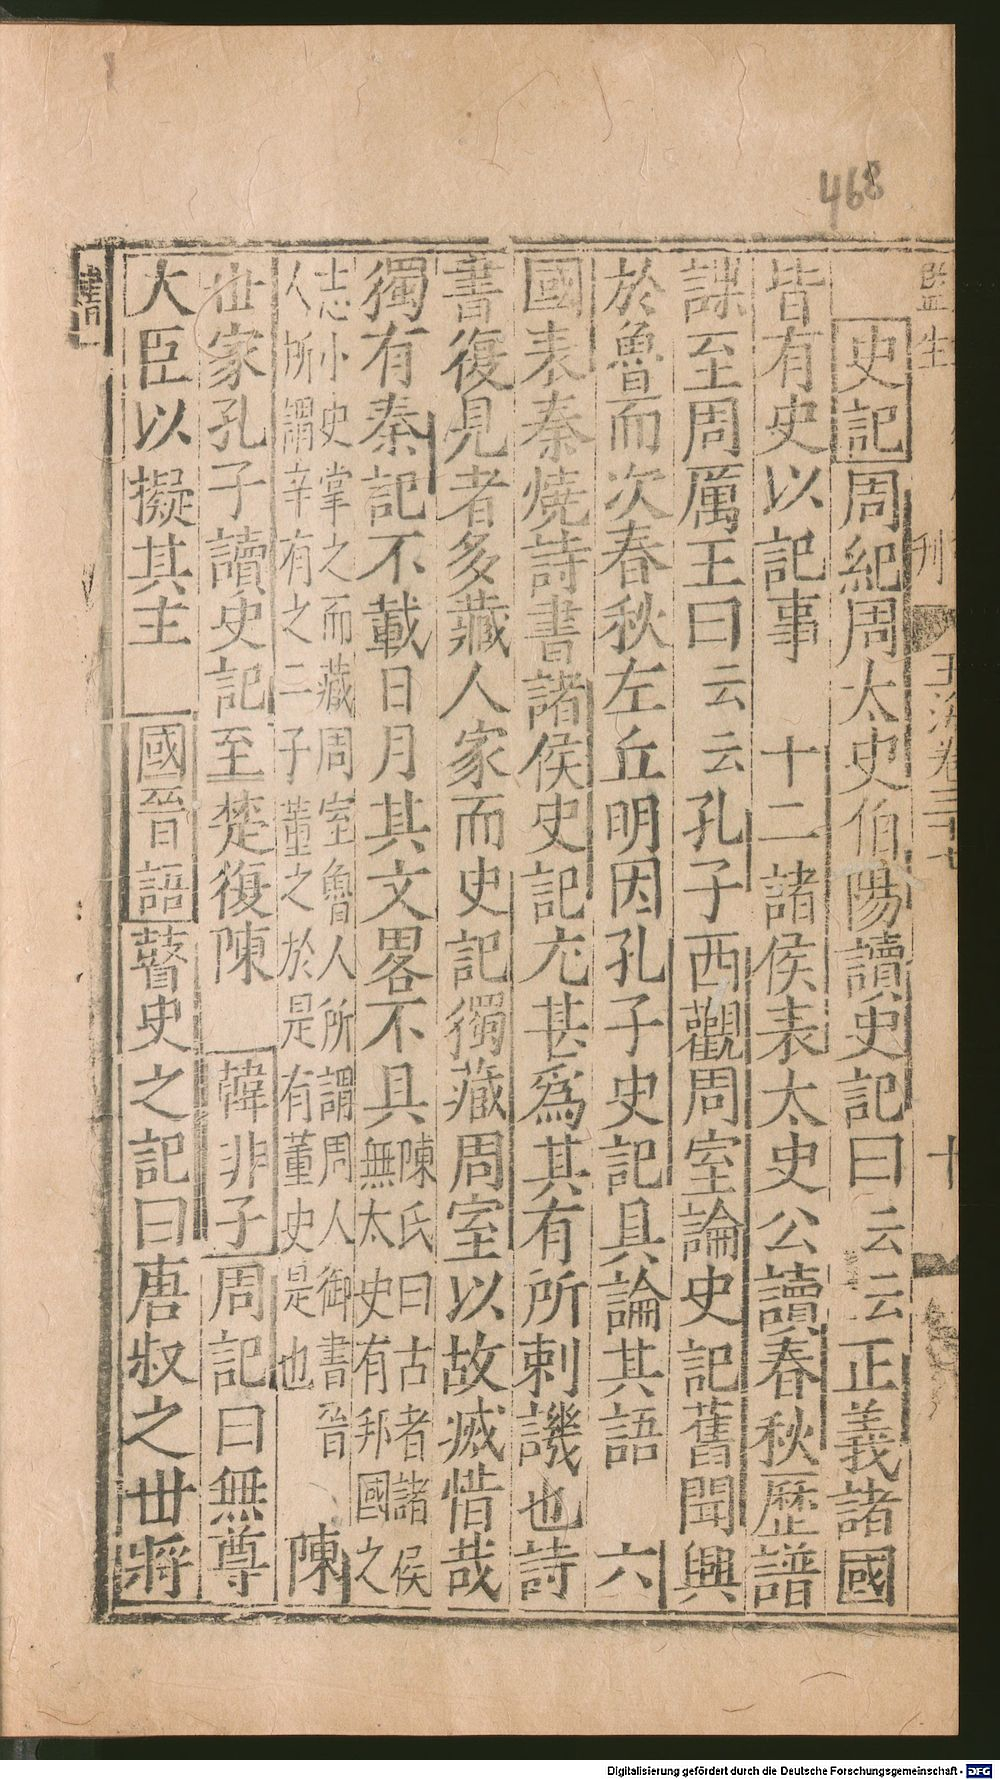 468
監生
刊
玉海卷三十七
十
史記周紀周太史伯陽讀史記曰云云正義諸國
皆有史以記事 十二諸侯表太史公讀春秋歷譜
諜至周厲王曰云云孔子西觀周室論史記舊聞興
於魯而次春秋左丘明因孔子史記具論其語 六
國表秦燒詩書諸侯史記尤甚爲其有所刺譏也詩
書復見者多藏人家而史記獨藏周室以故滅惜哉
獨有秦記不載日月其文畧不具陳氏曰古者諸侯
無太史有邦國之
志小史掌之而藏周室魯人所謂周人御書晉
人所謂辛有之二子董之於是有董史是也 陳
世家孔子讀史記至楚復陳 韓非子周記曰無尊
大臣以擬其主 國晉語瞽史之記曰唐叔之世將
書一
Digitalisierung gefördert durch die Deutsche Forschungsgemeinschaft - DFG